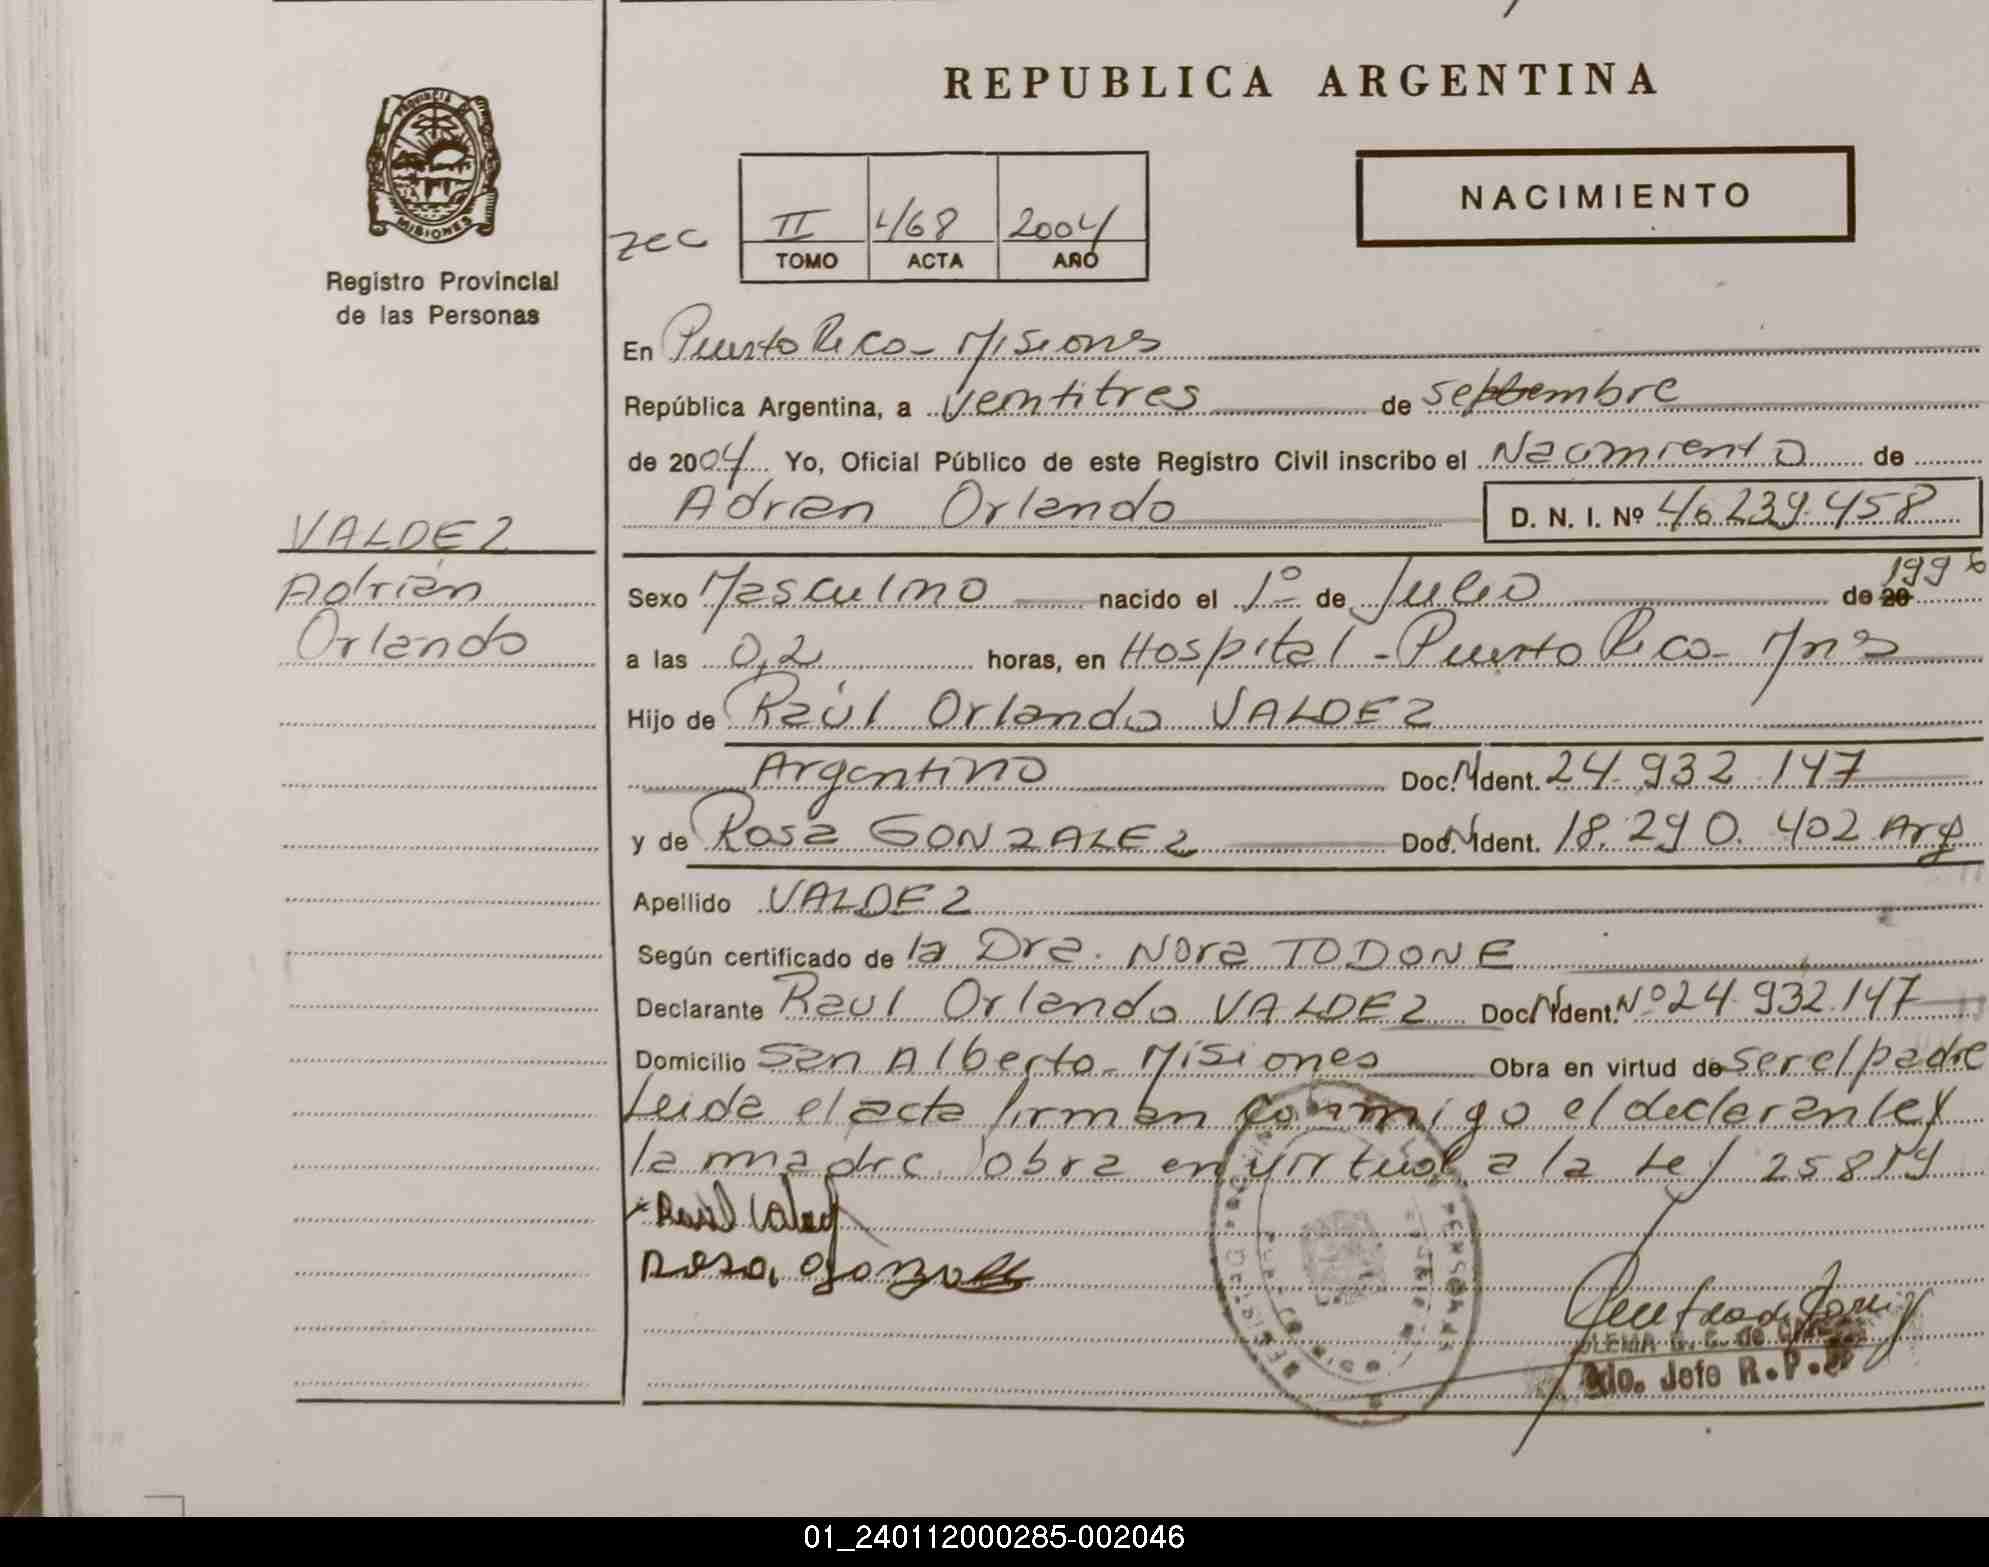 REPUBLICA ARGENTINA
PROVINCIA DE
MISIONES
Registro Provincial
de las Personas
NACIMIENTO
II 468 2004
TOMO ACTA AÑO
En Puerto Rico - Misiones
República Argentina, a veintitres de septiembre
de 2004 Yo, Oficial Público de este Registro Civil inscribo el Nacimiento de
Adrian Orlando D. N. I. Nº 46.239.458
VALDEZ
Adrián
Orlando
Sexo Masculino nacido el 1º de Julio de 20 199
a las 0,2 horas, en Hospital - Puerto Rico - Mnes
Hijo de Raúl Orlando VALDEZ
Argentino Doc. Ident. 24.932.147
y de Rosa GONZALEZ Doc. Ident. 18.290.402 Arg
Apellido VALDEZ
Según certificado de la Dra. Nora TODONE
Declarante Raul Orlando VALDEZ Doc. Ident. Nº 24.932.147
Domicilio San Alberto - Misiones Obra en virtud de ser el padre
Leida el acta firman conmigo el declarante y
la madre. obra en virtud a la Ley 25819
Raúl Valdez
Rosa, Gonzalez
2do. Jefe R.P.
01_240112000285-002046